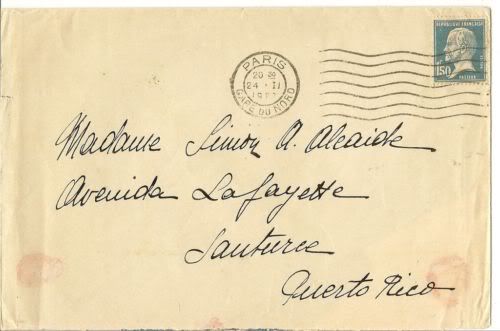 PARIS
20 30
24 · II
GARE DU NORD
REPUBLIQUE FRANÇAISE
1F50
PASTEUR
Madame Simon A. Alcaide
Avenida Lafayette
Santurce
Puerto Rico